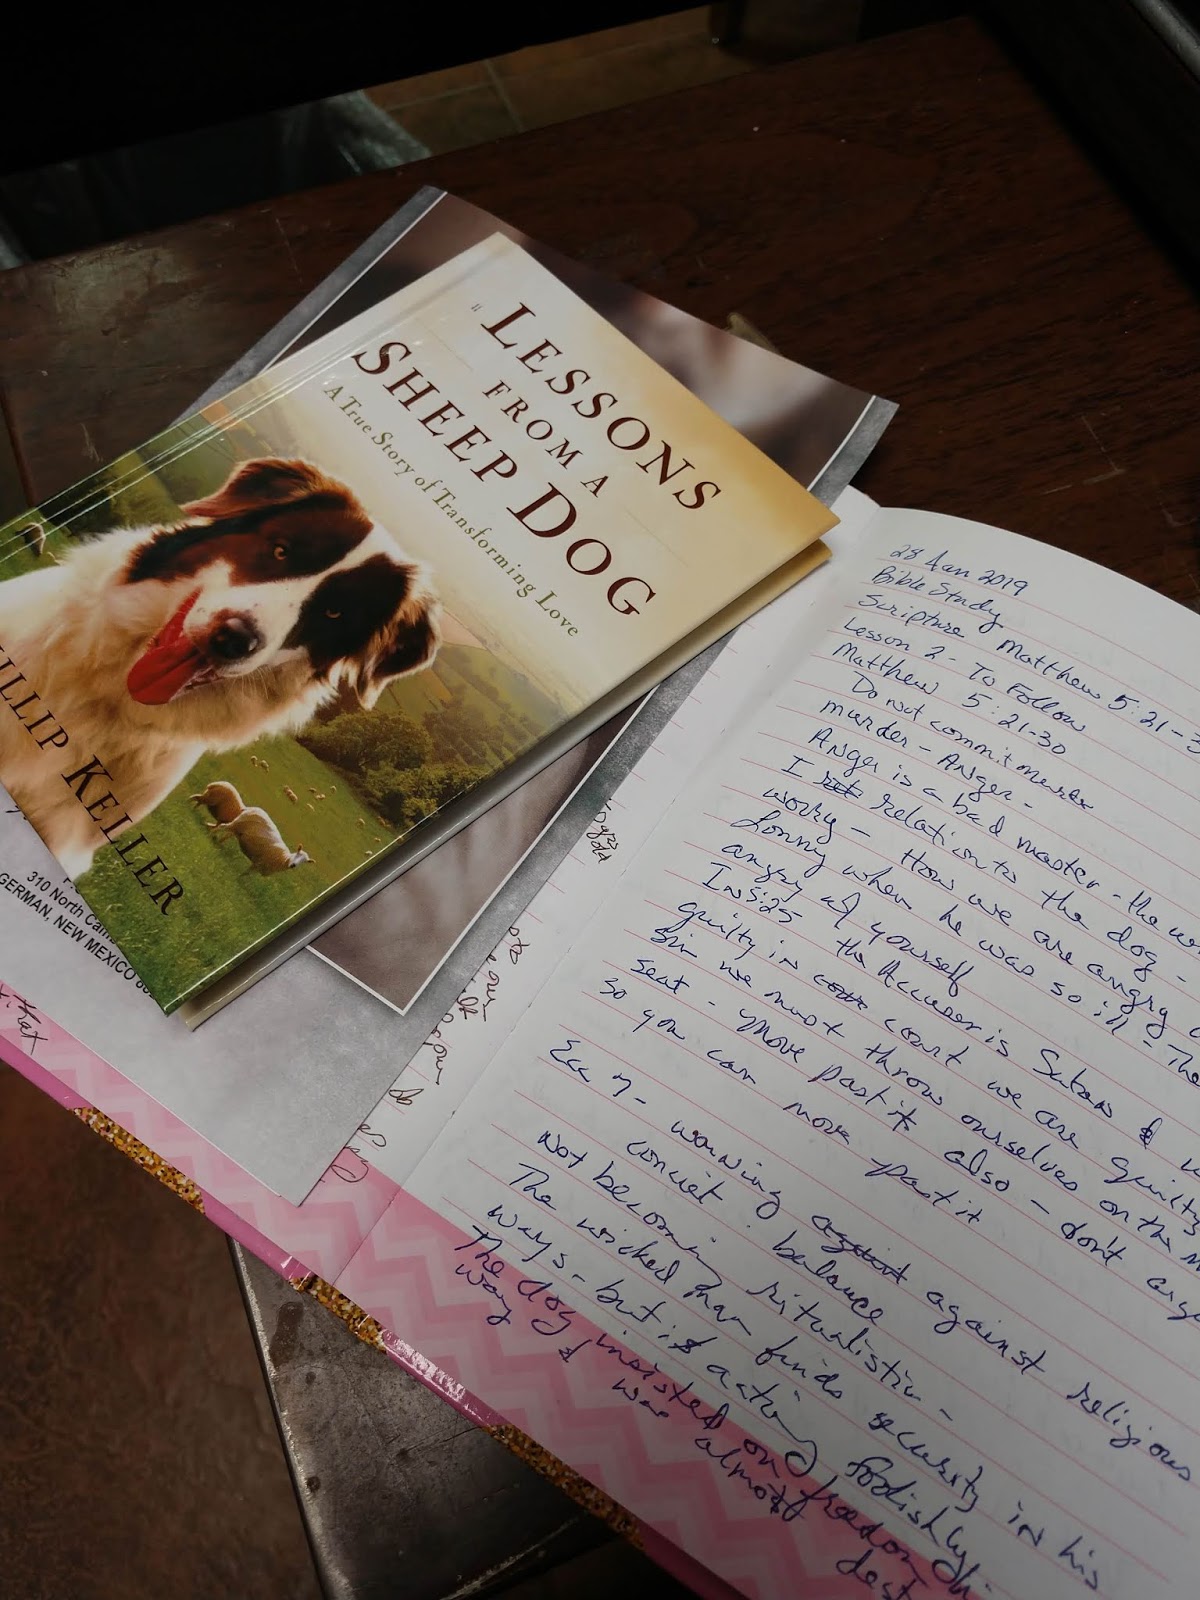 "LESSONS
FROM A
SHEEP DOG
A True Story of Transforming Love
ILLIP KELLER
310 North Cam
GERMAN, NEW MEXICO
28 Jan 2019
Bible Study
Scripture Matthew 5:21-3
Lesson 2 - To Follow
Matthew 5:21-30
Do not commit murder
murder - Anger -
Anger is a bad master - the
I relation to the dog -
worry - How we are angry
Lonny when he was so ill - The
angry of yourself
In 5:25 the Accuser is Satan &
guilty in court we are guilty
Sin we must throw ourselves on the m
seat - Move past it also - don't
so you can move past it
Ecc 7 - warning against religious
conciet balance
Not becoming ritualistic -
The wicked man finds security in his
ways - but is acting foolishly
The dog insisted on freedom
way & was almost dest